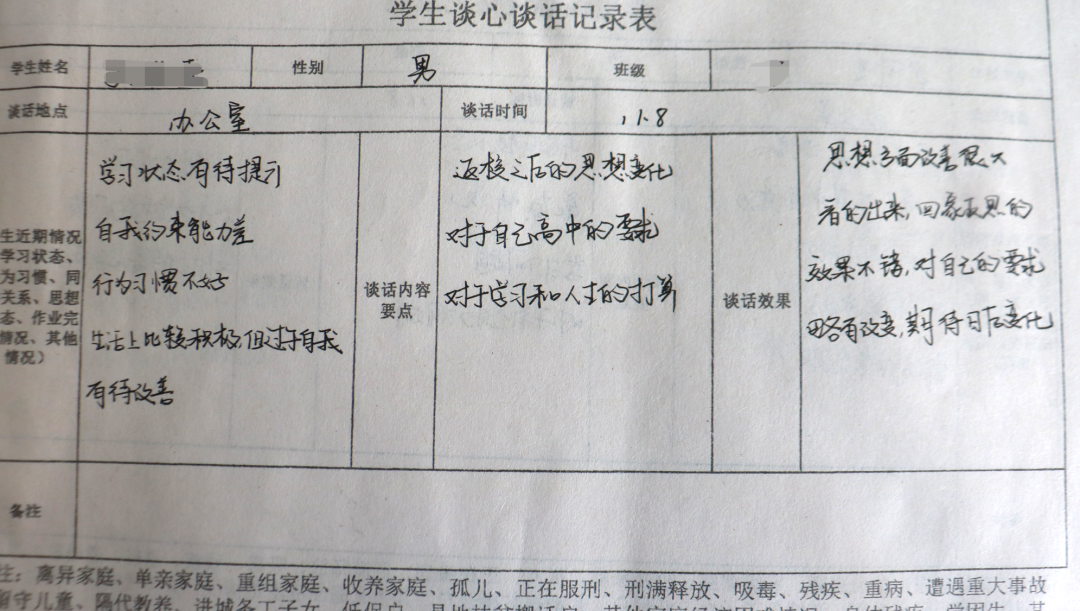 学生谈心谈话记录表
学生姓名
性别
男
班级
谈话地点
办公室
谈话时间
11.8
生近期情况
学习状态、
为习惯、同
关系、思想
态、作业完
情况、其他
情况）
学习状态有待提示
自我约束能力差
行为习惯不好
生活上比较积极,但过于自我
有待改善
谈话内容
要点
返校之后的思想变化
对于自己高中的要求
对于学习和人生的打算
谈话效果
思想方面改善很大
看的出来,回家反思的
效果不错,对自己的要求
略有改变,期待日后变化
备注
注：离异家庭、单亲家庭、重组家庭、收养家庭、孤儿、正在服刑、刑满释放、吸毒、残疾、重病、遭遇重大事故
留守儿童、隔代教养、进城务工子女、低保户、易地扶贫搬迁户、其他家庭经济困难情况、身体残疾、学困生、其